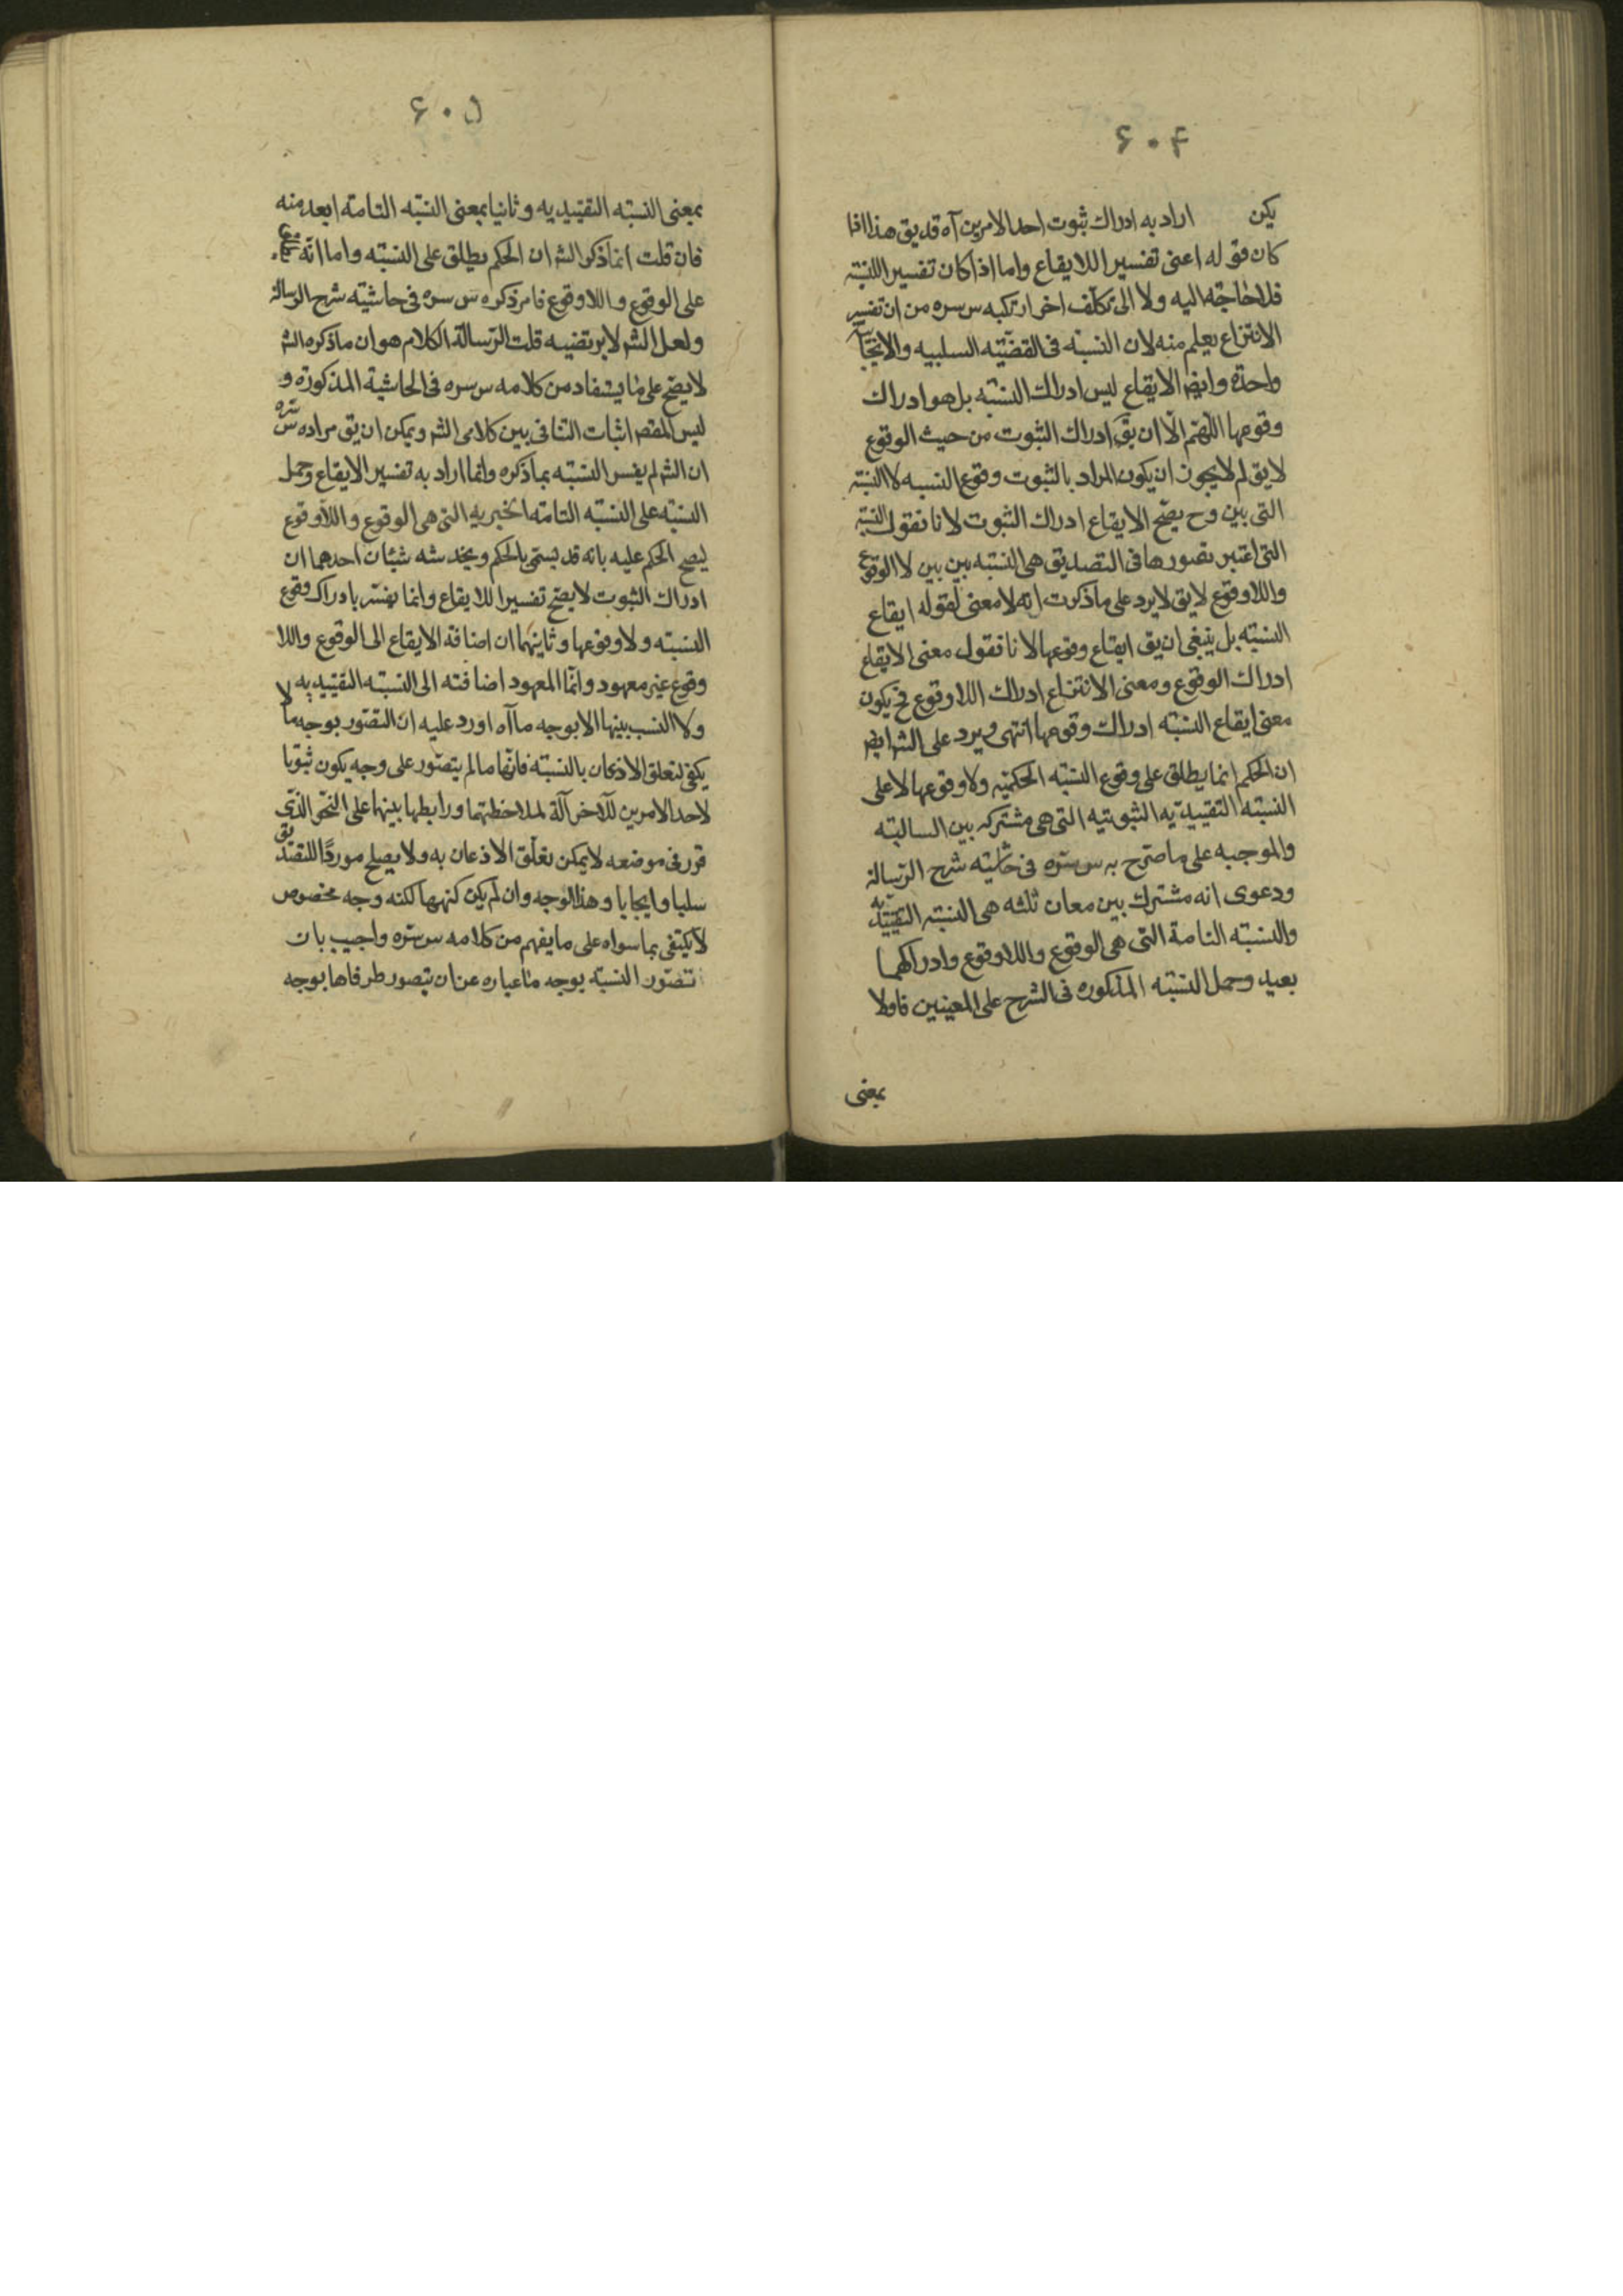 ۶۰۴
يكن اراد به ادراك ثبوت احد الامرين آه قد يق هذا اذا
كان قوله اعنى تفسيرا للايقاع واما اذا كان تفسير اللنسبة
فلا حاجة اليه ولا الى تكلف اخر ارتكبه س سره من ان تفسير
الانتزاع يعلم منه لان النسبة فى القضيّته السلبيه والايجابية
واحدة وايضا الايقاع ليس ادراك النسبته بل هو ادراك
وقوعها اللّهم الّا ان يق ادراك الثبوت من حيث الوقوع
لا يق لم لا يجوز ان يكون المراد بالثبوت وقوع النسبه لا النسبة
التى بين وح يصح الايقاع ادراك الثبوت لانا نقول النسبة
التى اعتبر تصورها فى التصديق هى النسبته بين بين لا الوقوع
واللاوقوع لا يق لا يرد على ما ذكرت انه لا معنى لقوله ايقاع
النسبته بل ينبغى ان يق ايقاع وقوعها لانا نقول معنى الايقاع
ادراك الوقوع ومعنى الانتزاع ادراك اللا وقوع فح يكون
معنى ايقاع النسبته ادراك وقوعها انتهى ويرد على الشر ايضا
ان الحكم انما يطلق على وقوع النسبته الحكمية ولا وقوعها لا على
النسبته التقييديّه الثبوتيه التى هى مشتركه بين السالبته
والموجبه على ما صرّح به س سرّه فى حاشيته شرح الرسالة
ودعوى انه مشترك بين معان ثلثه هى النسبته التقييديّه
والنسبته التامة التى هى الوقوع واللاوقوع وادراكهما
بعيد وحمل النسبته المذكوره فى الشرح على المعنيين فاولا
بمعنى
۶۰۵
بمعنى النسبته التقييديه وثانيا بمعنى النسبّه التامة ابعد منه
فان قلت انما ذكر الشر ان الحكم يطلق على النسبّته واما انّه
على الوقوع واللاوقوع فامر ذكره س سره فى حاشيته شرح الرسالة
ولعل الشر لا يرتضيه قلت الرّسالة الكلام هو ان ما ذكره الشر
لا يصحّ على ما يستفاد من كلامه س سره فى الحاشية المذكورة و
ليس المقصر اثبات التنافى بين كلامى الشر ويمكن ان يق مراده س سره
ان الشر لم يفسر النسبته بما ذكره وانما اراد به تفسير الايقاع وحمل
النسبته على النسبّته التامّة الخبريه التى هى الوقوع واللاوقوع
ليصح الحكم عليه بانه قد يسمّى بالحكم ويخدشه شيئان احدهما ان
ادراك الثبوت لا يصحّ تفسيرا للايقاع وانما يفسّر بادراك وقوع
النسبته ولا وقوعها وثانيهما ان اضافة الايقاع الى الوقوع واللا
وقوع غير معهود وانّما المعهود اضافته الى النسبته التقييديه
ولا النسب بينها الا بوجه ما آه اورد عليه ان التصّور بوجه ما لا
يكفى لتعلق الاذعان بالنسبّة فانّها ما لم يتصّور على وجه يكون ثبوتا
لاحد الامرين للآخر آلة لملاحظتهما ورابطها بينهما على النّحو الذّى
قرر فى موضعه لا يمكن تعلّق الاذعان به ولا يصلح موردًا للتصديق
سلبا وايجابا وهذا الوجه وان لم يكن كنهها لكنه وجه مخصوص
لا يكتفى بما سواه على ما يفهم من كلامه س سرّه واجيب بان
تصّور النسبّة بوجه ما عباره عن ان يتصور طرفاها بوجه